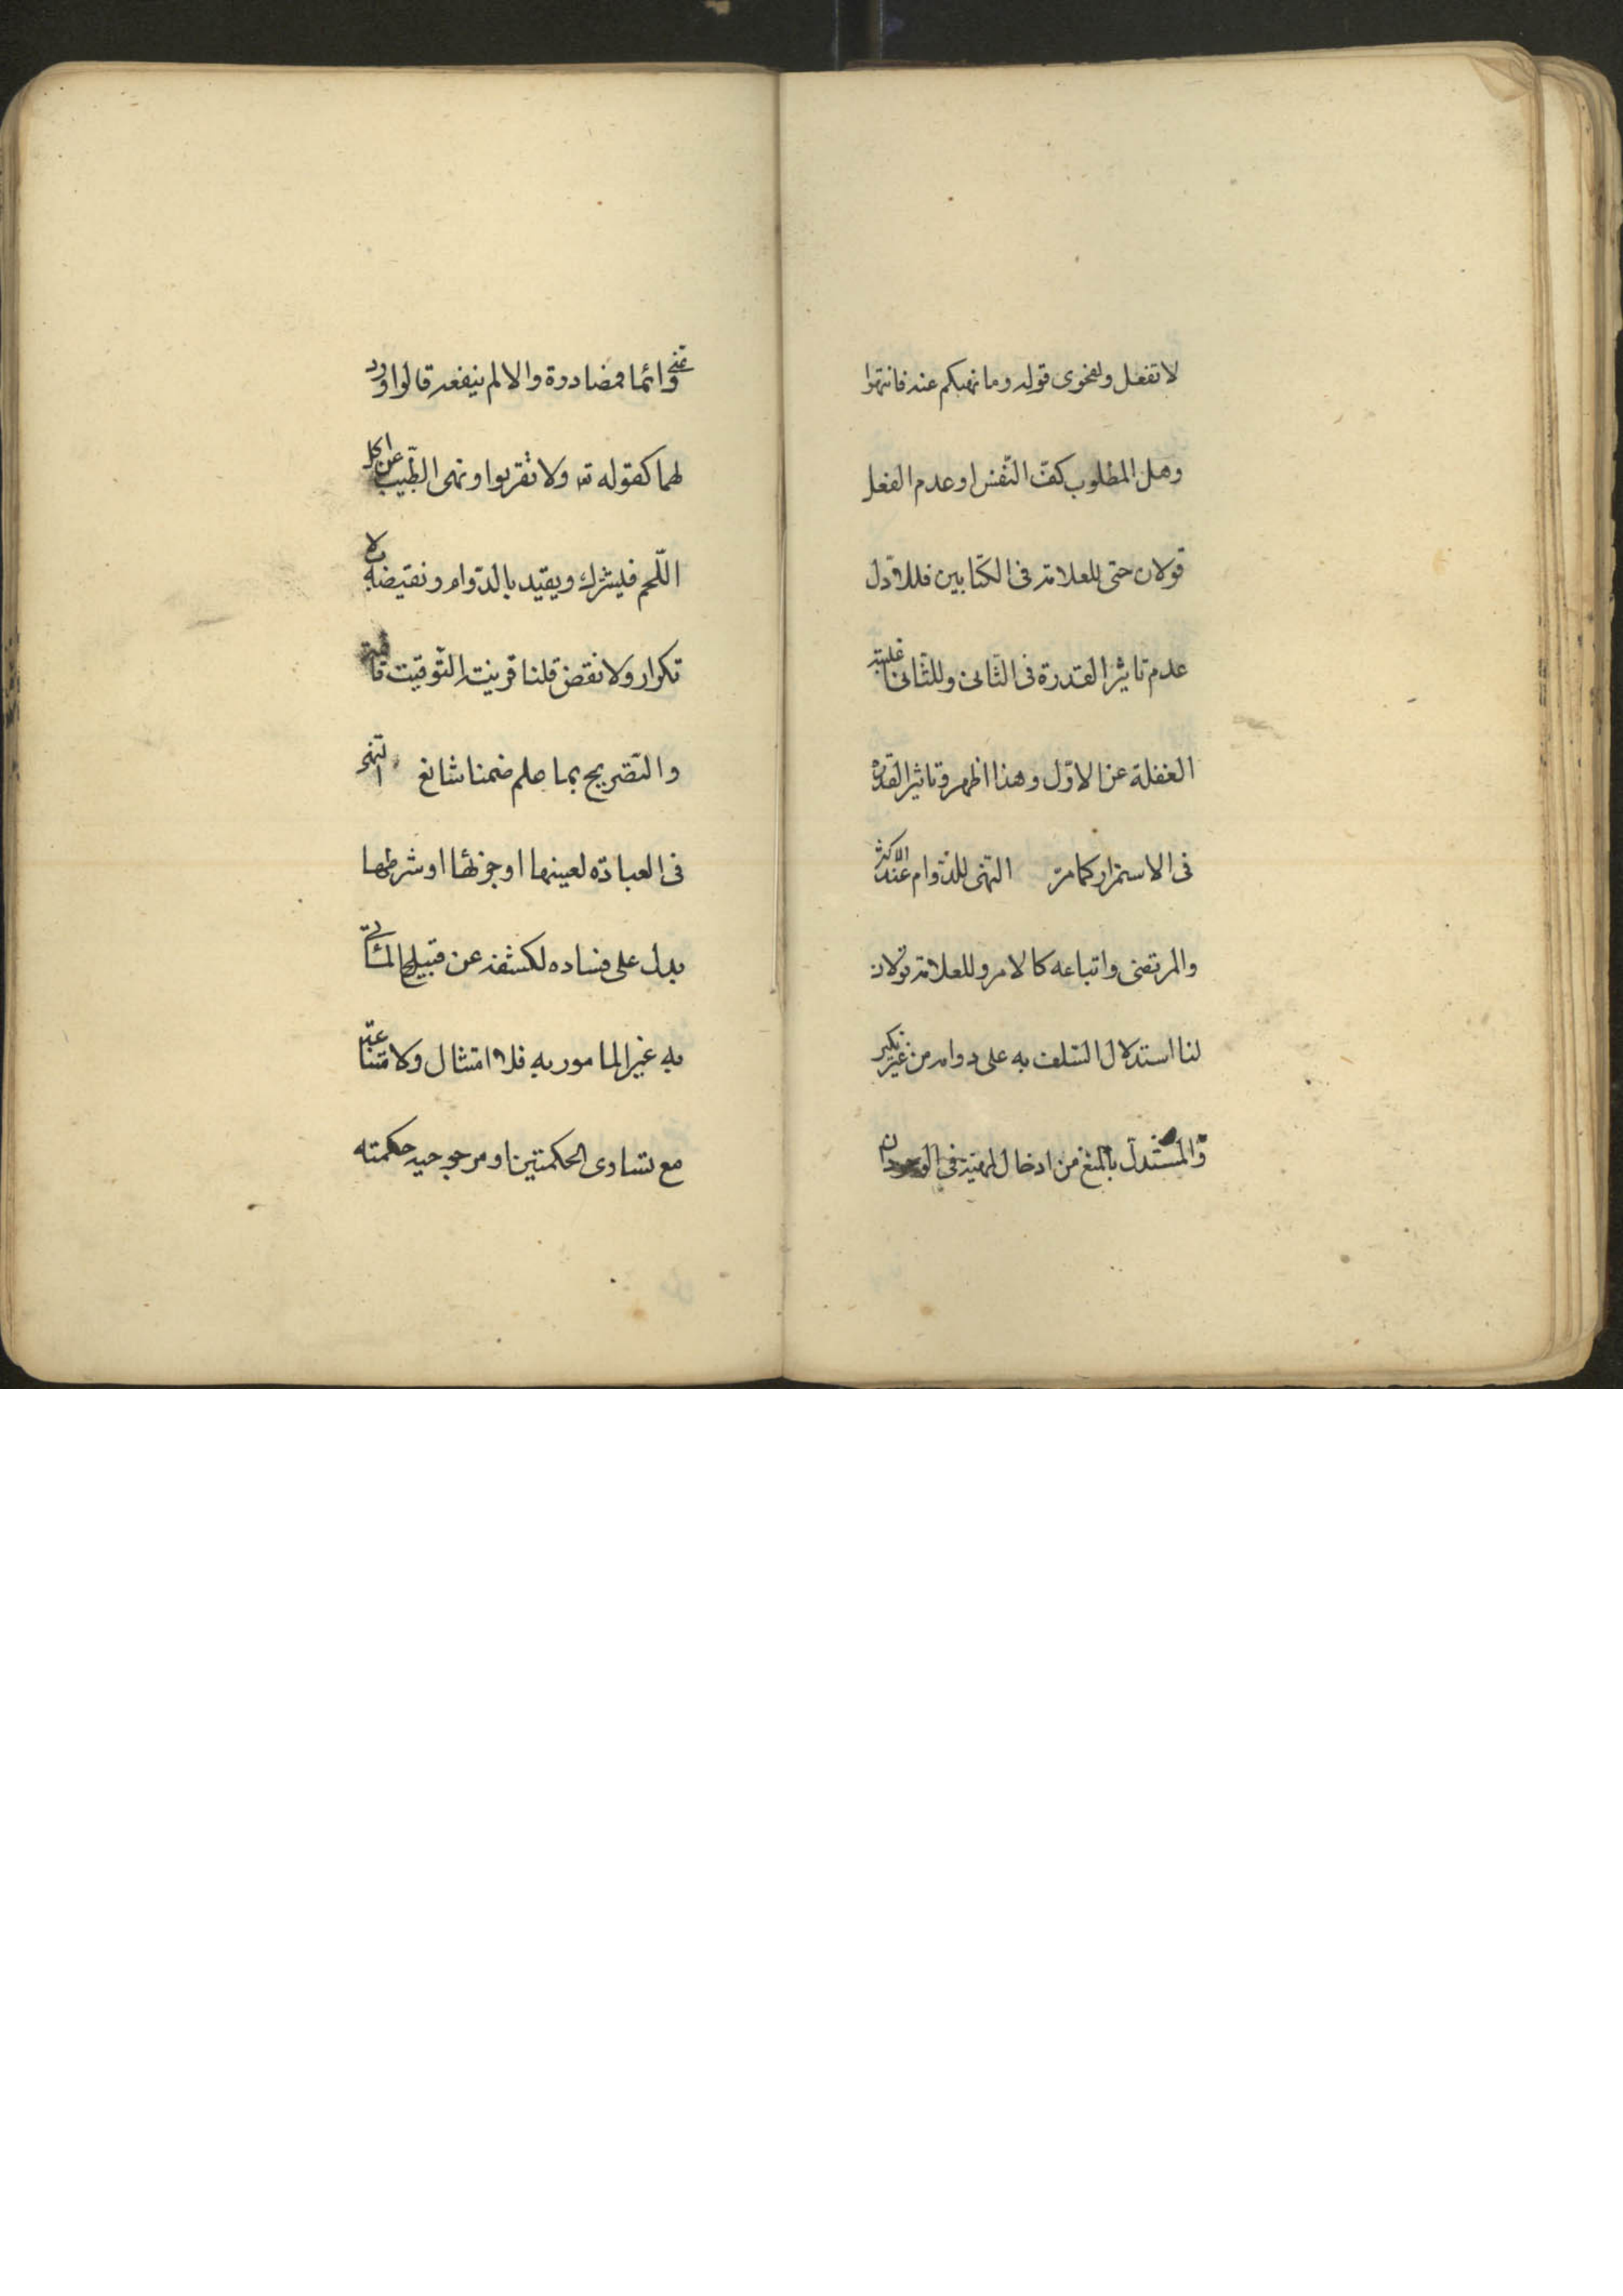 لا تفعل ولفحوى قوله وما نهيكم عنه فانتهوا
وهل المطلوب كفّ النّفس او عدم الفعل
قولان حتى للعلامة فى الكتابين فللاوّل
عدم تاثير القدرة فى الثّانى وللثّانى غلبة
الغفلة عن الاوّل وهذا اظهر وتاثير القدرة
فى الاستمرار كما مرّ النّهى للدّوام عند الاكثر
والمرتضى واتباعه كالامر وللعلامة قولان
لنا استدلال السّلف به على دوامه من غير نكير
والمستدل بالمنع من ادخال المهيّة فى الوجود ان
عنى دائما فمصادرة والا لم ينفعه قالوا ورد
لهما كقوله تعـ ولا تقربوا ونهى الطّبيب عن اكل
اللّحم فليشترك ويقيد بالدّوام ونقيضه بلا
تكرار ولا نقض قلنا قرينة التّوقيت قائمة
والتّصريح بما علم ضمنا شائع النّهى
فى العبادة لعينها او جزئها او شرطها
يدل على فساده لكشفه عن قبيح المأتى
به غير المامور به فلا امتثال ولامتناعه
مع تساوى الحكمتين او مرجوحيه حكمته